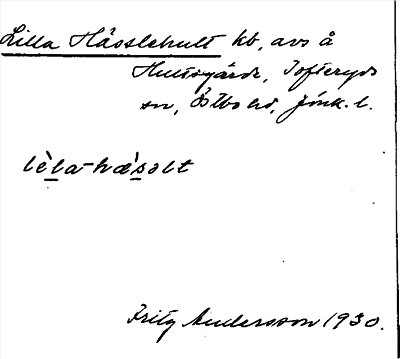 Lilla Hässlehult kb, avs å
Hultsgärde, Tofteryds
sn, Östbo hd, Jönk. l.
lèla-hæ̀solt
Fritz Andersson 1930.